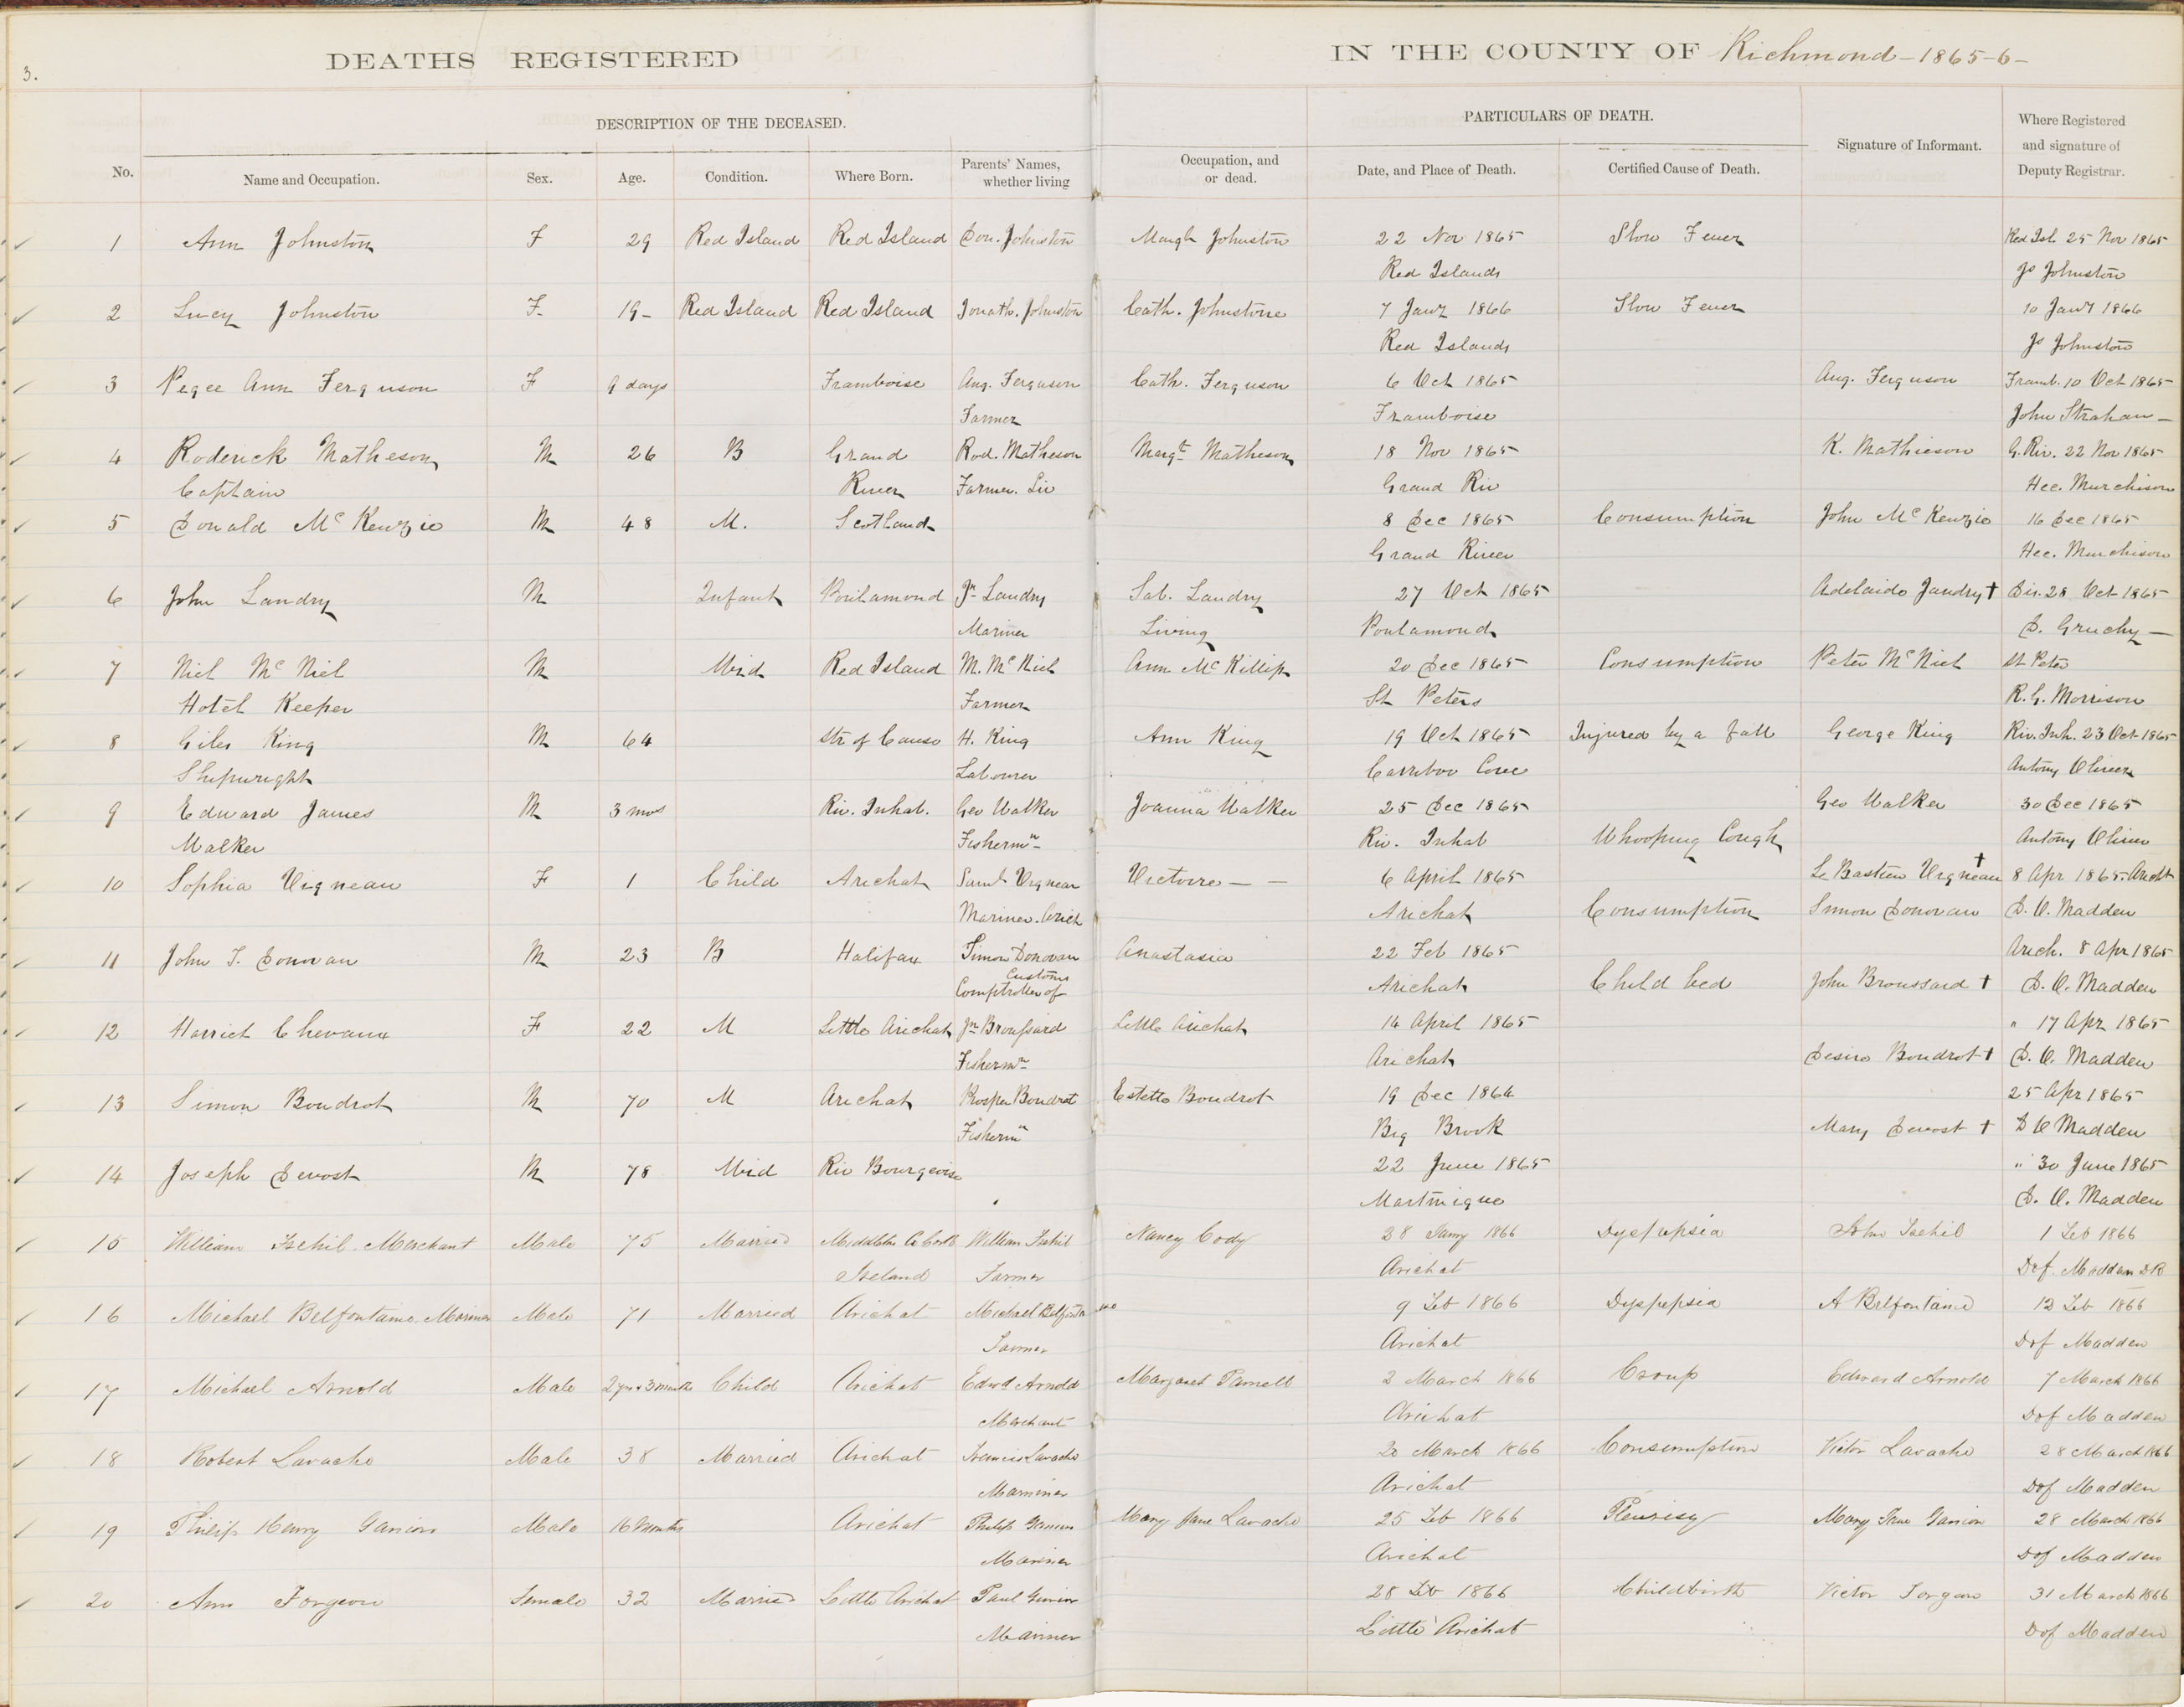 3.
DEATHS REGISTERED IN THE COUNTY OF Richmond - 1865-6 -
DESCRIPTION OF THE DECEASED. PARTICULARS OF DEATH.
No. Name and Occupation. Sex. Age. Condition. Where Born. Parents' Names, whether living Occupation, and or dead. Date, and Place of Death. Certified Cause of Death. Signature of Informant. Where Registered and signature of Deputy Registrar.
1 Ann Johnston F 29 Red Island Red Island Don. Johnston Margh Johnston 22 Nov 1865 Slow Fever Red Isl. 25 Nov 1865
Red Islands Js Johnston
2 Lucy Johnston F- 19- Red Island Red Island Jonath. Johnston Cath. Johnstone 7 Jany 1866 Slow Fever 10 Jany 1866
Red Islands Js Johnston
3 Pegee Ann Ferguson F 9 days Framboise Ang. Ferguson Cath. Ferguson 6 Oct 1865 Ang. Ferguson Framb. 10 Oct 1865
Farmer Framboise John Strahan -
4 Roderick Matheson M 26 B Grand Rod. Matheson Margt Matheson 18 Nov 1865 K. Mathieson G. Riv. 22 Nov 1865
Captain River Farmer. Liv Grand Riv Hec. Murchison
5 Donald McKenzie M 48 M. Scotland 8 Dec 1865 Consumption John McKenzie 16 Dec 1865
Grand River Hec. Murchison
6 John Landry M Infant Poulamond Jn Landry Sab. Landry 27 Oct 1865 Adelaide Landry † Dis. 28 Oct 1865
Mariner Living Poulamond D. Gruchy -
7 Niel McNiel M Wid Red Island M. McNiel Ann McKillip 20 Dec 1865 Consumption Peter McNiel St Peter
Hotel Keeper Farmer St Peters R. G. Morrison
8 Giles King M 64 Str of Canso H. King Ann King 19 Oct 1865 Injured by a fall George King Riv. Inh. 23 Oct 1865
Shipwright Labourer Carriboo Cove Antony Oliver
9 Edward James M 3 mos Riv. Inhab. Geo Walker Joanna Walker 25 Dec 1865 Geo Walker 30 Dec 1865
Walker Fishermn Riv. Inhab Whooping Cough Antony Oliver
10 Sophia Vigneau F 1 Child Arichat Saml Vigneau Victoire - - 6 April 1865 Le Bastien Vigneau † 8 Apr 1865 Aricht
Mariner. Arich Arichat Consumption Simon Donovan D. O. Madden
11 John T. Donovan M 23 B Halifax Simon Donovan Anastasia 22 Feb 1865 Arich. 8 Apr 1865
Customs
Comptroller of Arichat Child bed John Broussard † D. O. Madden
12 Harriet Chevaux F 22 M Little Arichat Jn Broussard Little Arichat 14 April 1865 " 17 Apr 1865
Fishermn Arichat Desire Boudrot † D. O. Madden
13 Simon Boudrot M 70 M Arichat Prosper Boudrot Estelle Boudrot 19 Dec 1864 25 Apr 1865
Fishermn Big Brook Mary Devost † D O Madden
14 Joseph Devost M 78 Wid Riv Bourgeois 22 June 1865 " 30 June 1865
Martinique D. O. Madden
15 William Male 75 Married William Nancy Cody 28 Jany 1866 Dyspepsia John 1 Feb 1866
Ireland Farmer Arichat Dof. Madden DR
16 Michael Belfontaine Mariner Male 71 Married Arichat Michael Belfontaine 9 Feb 1866 Dyspepsia A Belfontaine 12 Feb 1866
Farmer Arichat Dof Madden
17 Michael Arnold Male 2 yrs & 3 months Child Arichat Edwd Arnold Margaret Parnell 2 March 1866 Croup Edward Arnold 7 March 1866
Merchant Arichat Dof Madden
18 Robert Lavache Male 38 Married Arichat Francis Lavache 20 March 1866 Consumption Victor Lavache 28 March 1866
Mariner Arichat Dof Madden
19 Philip Henry Ganion Male 16 Months Arichat Philip Ganion Mary Jane Lavache 25 Feb 1866 Pleurisy Mary Jane Ganion 28 March 1866
Mariner Arichat Dof Madden
20 Ann Forgeron Female 32 Married Little Arichat Paul 28 Feb 1866 Childbirth Victor Forgeron 31 March 1866
Mariner Little Arichat Dof Madden